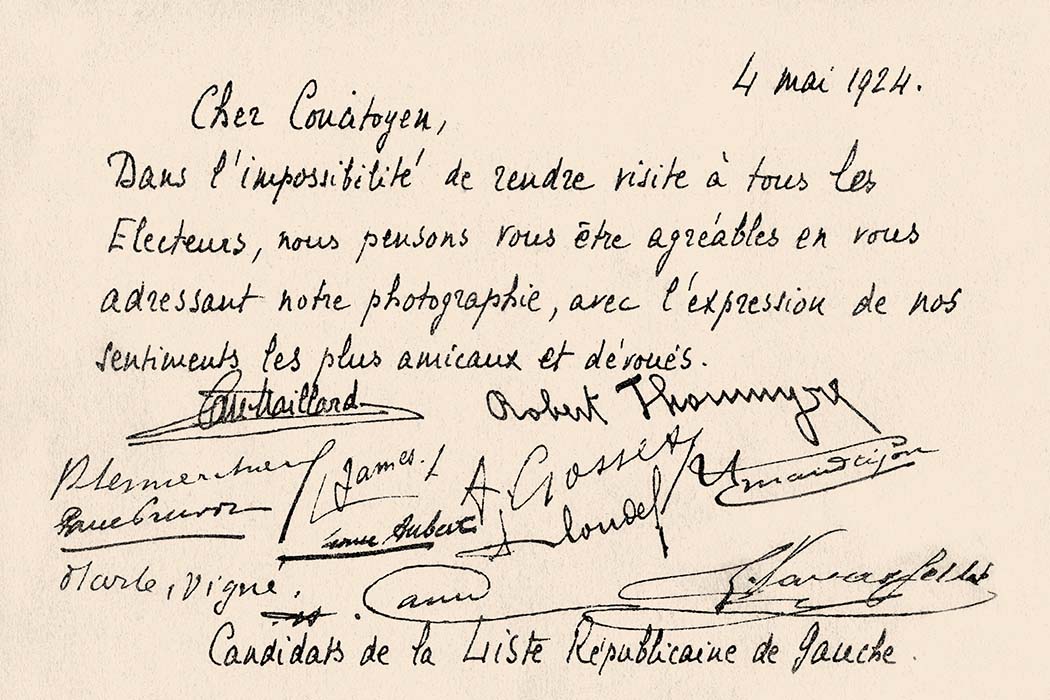 4 mai 1924.
Cher Concitoyen,
Dans l'impossibilité de rendre visite à tous les
Electeurs, nous pensons vous être agréables en vous
adressant notre photographie, avec l'expression de nos
sentiments les plus amicaux et dévoués.
Maillard
Robert Thoumyre
James
A. Gosset
Aubert
Marle, Vigné
Candidats de la Liste Républicaine de Gauche.